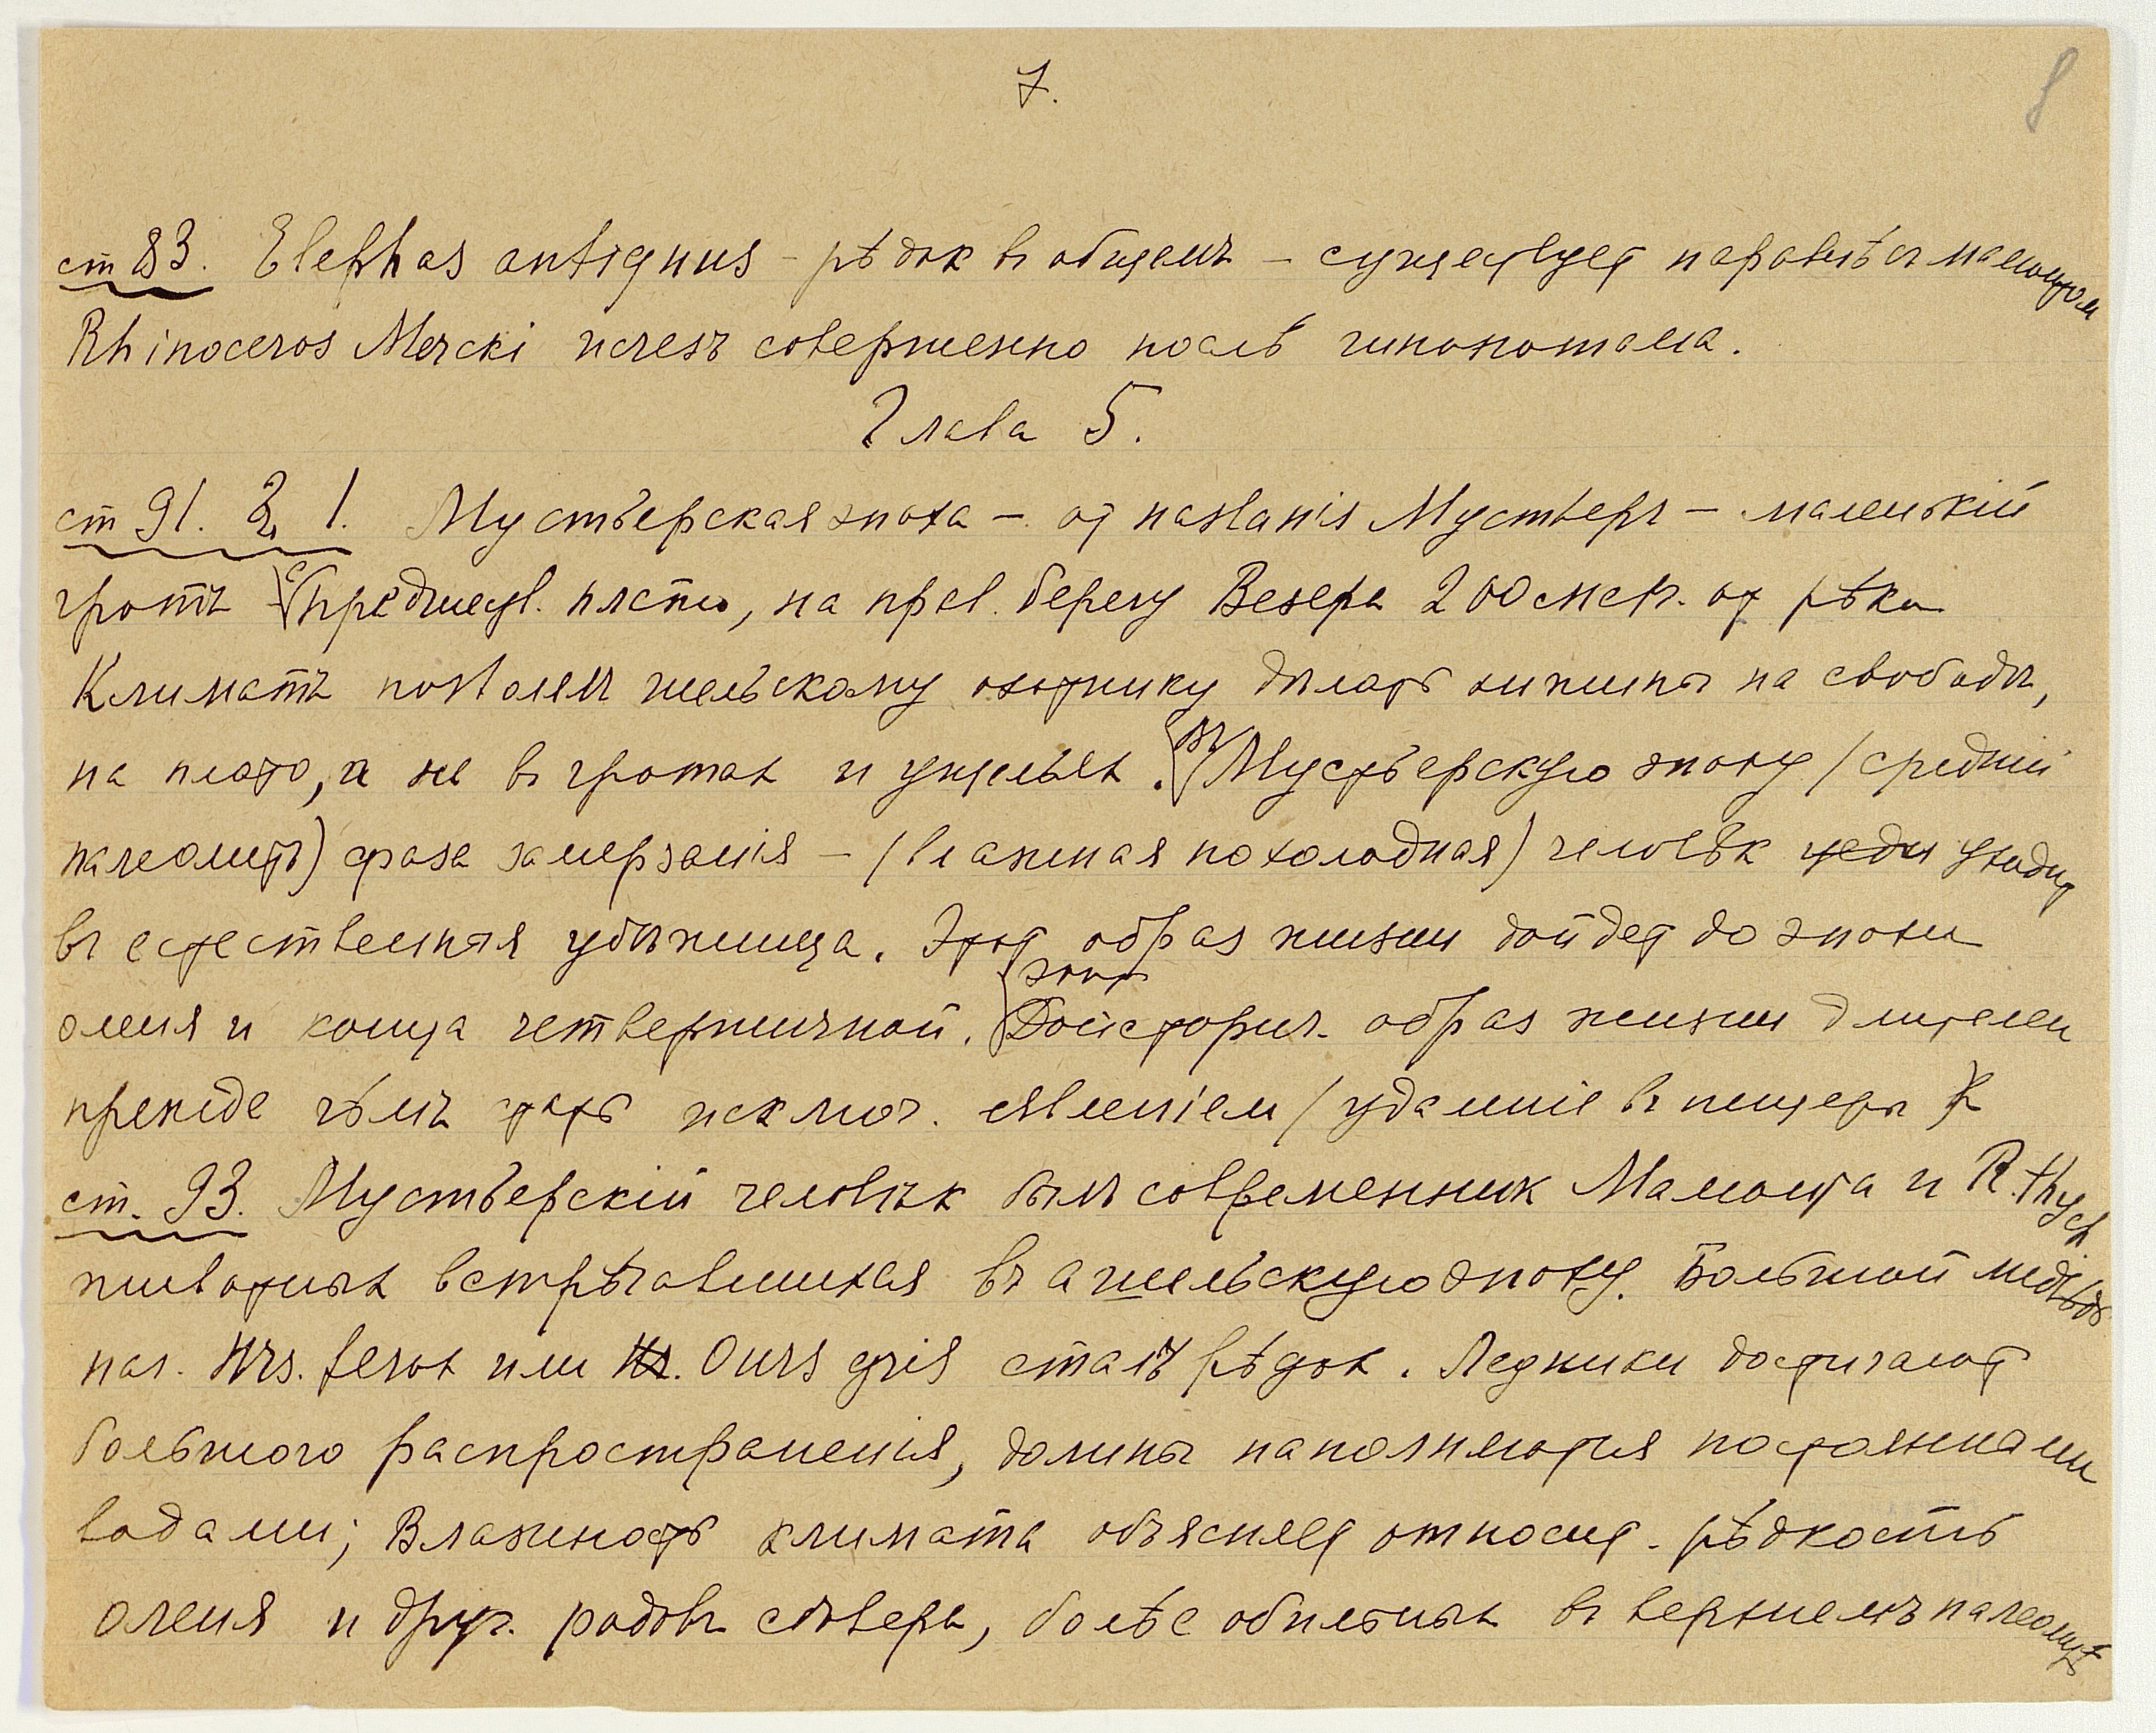 7.
8
ст 83. Elephas antiquus – рѣдок въ общемъ – существует наравнѣ съ мамонтом
Rhinoceros Mercki исчезъ совершенно послѣ гипопотама.
Глава 5.
ст 91. § 1. Мустьерская эпоха – от названія Мустьеръ – маленькій
гротъ с предшест. пласты, на прав. берегу Везера 200 мет. от рѣки
Климатъ позволял шельскому охотнику дѣлать хижины на свободѣ,
на плато, а не въ гротах и ущельях. Въ Мустьерскую эпоху (средній
палеолитъ) фаза замерзанія – (влажная похолодная) человѣк уходит
въ естественныя убѣжища. Этот образ жизни дойдет до эпохи
оленя и конца четвертичной. Этот Доисторич. образ жизни длителен
прежде чѣмъ стать исключ. явленіем (удаленіе въ пещеры
ст. 93. Мустьерскій человѣк был современник Мамонта и R. thych
животных встрѣчавшихся въ ашельскую эпоху. Большой медвѣдь
наз. Urs. ferox или Ours gris сталъ рѣдок. Ледники достигают
большого распространенія, долины наполняются постоянными
водами; Влажность климата объясняет относит. рѣдкость
оленя и друг. родовъ сѣвера, болѣе обильных въ верхнемъ палеолитѣ